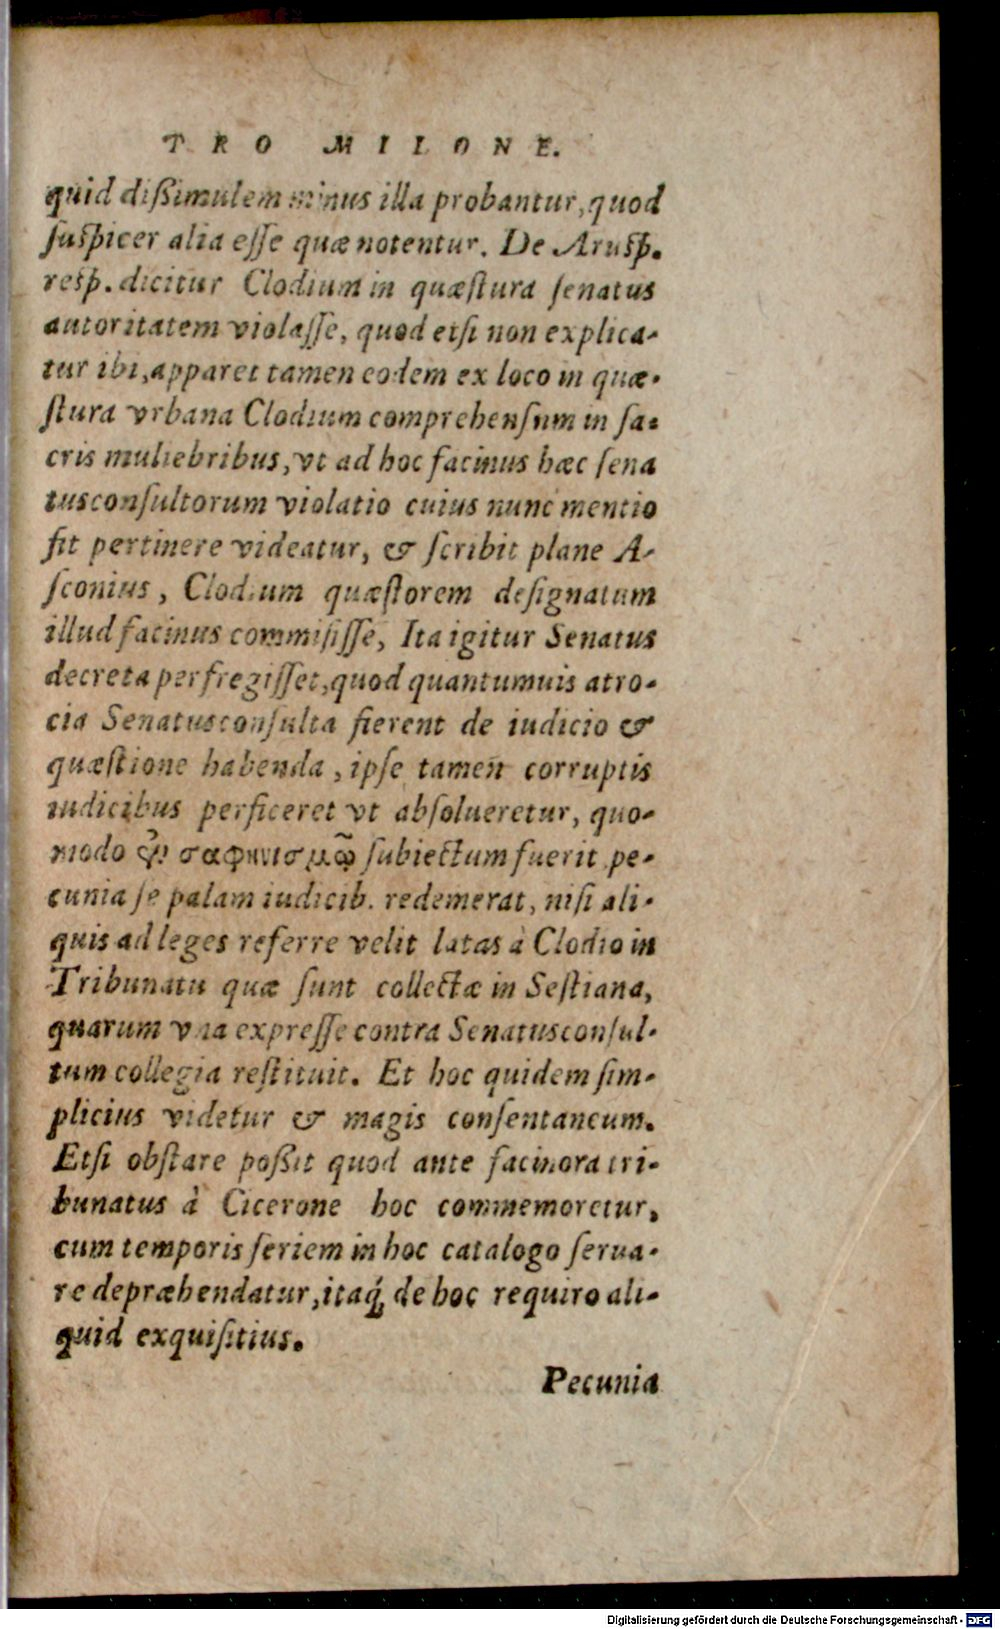 PRO MILONE.
quid dißimulem minus illa probantur, quod
ſuſpicer alia eſſe quæ notentur. De Aruſp.
reſp. dicitur Clodium in quæſtura ſenatus
autoritatem violaſſe, quod etſi non explica-
tur ibi, apparet tamen eodem ex loco in quæ-
ſtura vrbana Clodium comprehenſum in ſa-
cris muliebribus, vt ad hoc facinus hæc ſena
tusconſultorum violatio cuius nunc mentio
fit pertinere videatur, & ſcribit plane A-
ſconius, Clodium quæſtorem deſignatum
illud facinus commiſiſſe, Ita igitur Senatus
decreta perfregiſſet, quod quantumuis atro-
cia Senatusconſulta fierent de iudicio &
quæſtione habenda, ipſe tamen corruptis
iudicibus perficeret vt abſolueretur, quo-
modo σαφηνισμῷ ſubiectum fuerit pe-
cunia ſe palam iudicib. redemerat, niſi ali-
quis ad leges referre velit latas à Clodio in
Tribunatu quæ ſunt collectæ in Seſtiana,
quarum vna expreſſe contra Senatusconſul-
tum collegia reſtituit. Et hoc quidem ſim-
plicius videtur & magis conſentaneum.
Etſi obſtare poßit quod ante facinora tri-
bunatus à Cicerone hoc commemoretur,
cum temporis ſeriem in hoc catalogo ſerua-
re depræhendatur, itaq́; de hoc requiro ali-
quid exquiſitius.
Pecunia
Digitalisierung gefördert durch die Deutsche Forschungsgemeinschaft - DFG